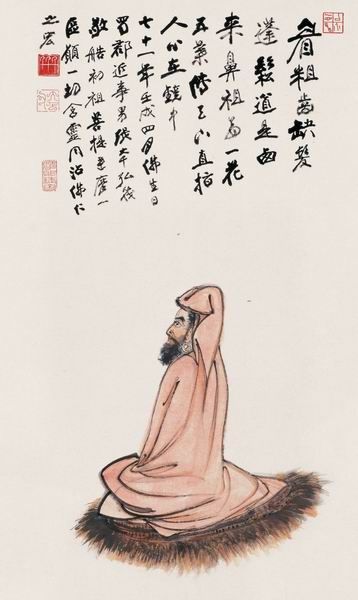 眉粗齒缺髮
蓬鬆道是西
来鼻祖翁一花
五葉傳天下直指
人心在鏡中
七十一年壬戌四月佛生日
蜀郡近事男張大千弘筏
敬艁初祖菩提達磨一
區願一切含靈同沾佛仁
之宏